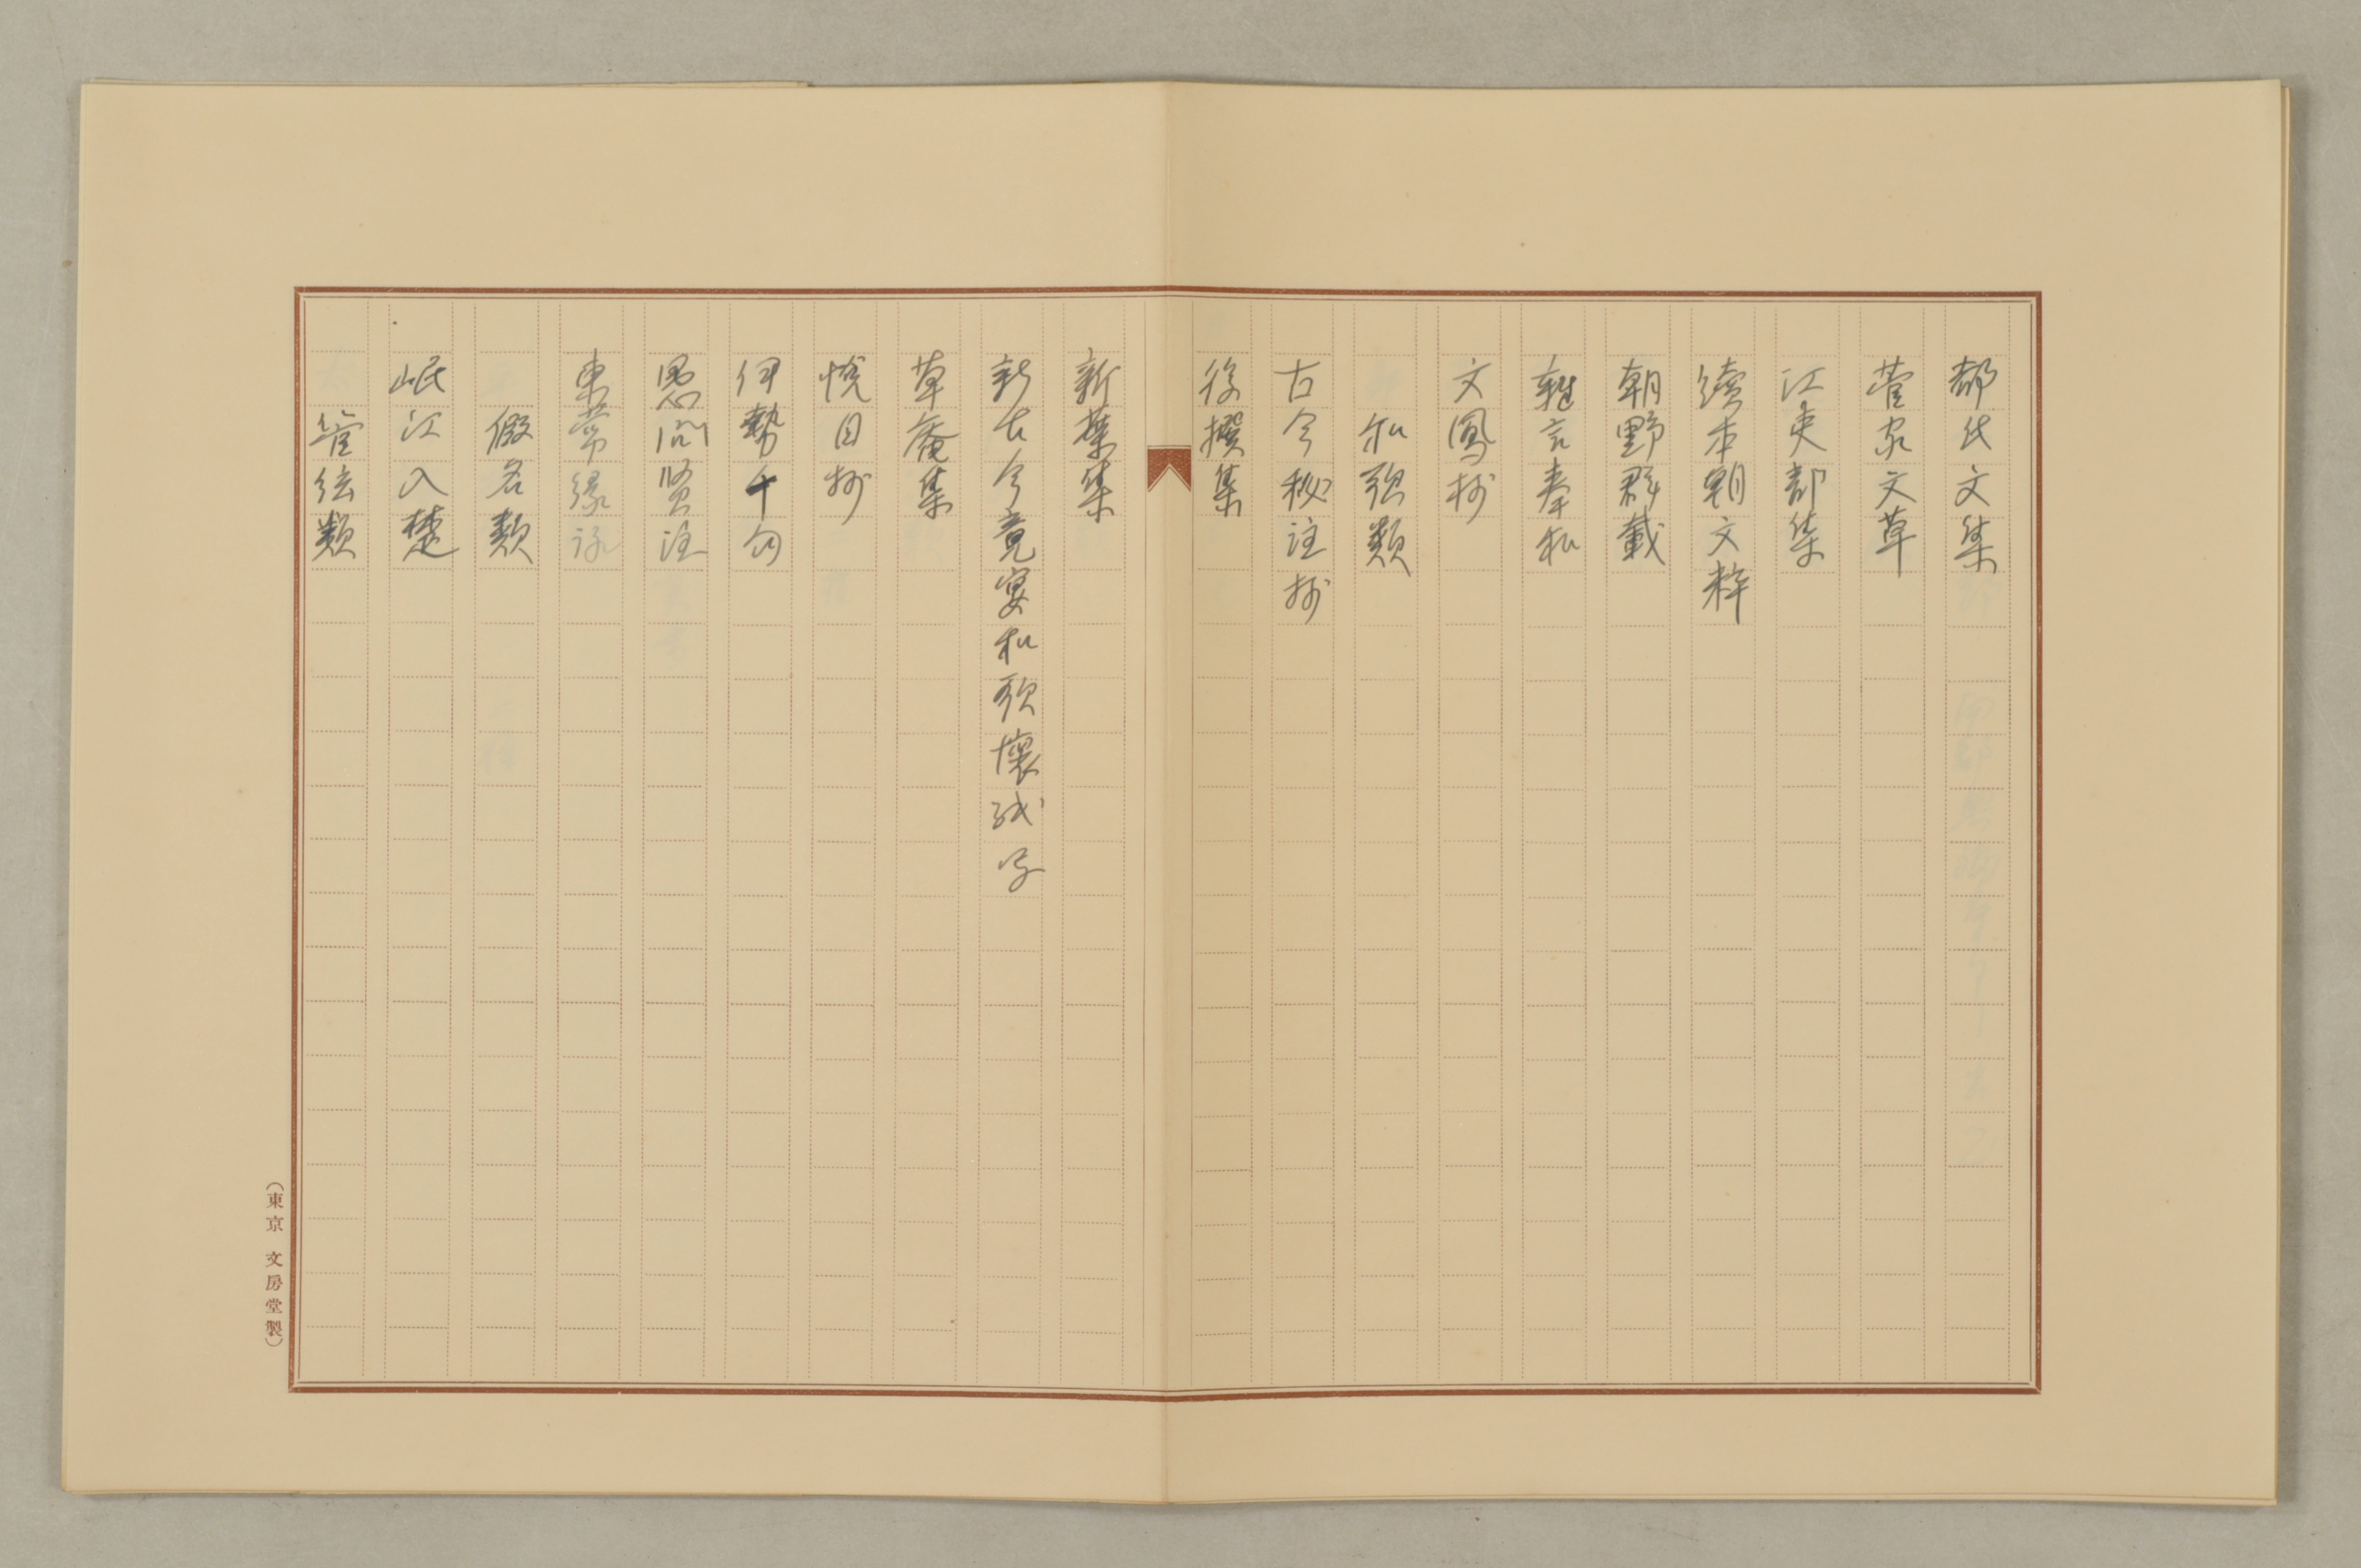 都氏文集
菅家文草
江吏部集
続本朝文粋
朝野群載
雑言奉和
文鳳抄
和歌類
古今秘注抄
後撰集
新葉集
新古今竟宴和歌懐紙写
草庵集
悦目抄
伊勢千句
愚問賢注
東常縁詠
仮名類
岷江入楚
管絃類
(東京 文房堂製)